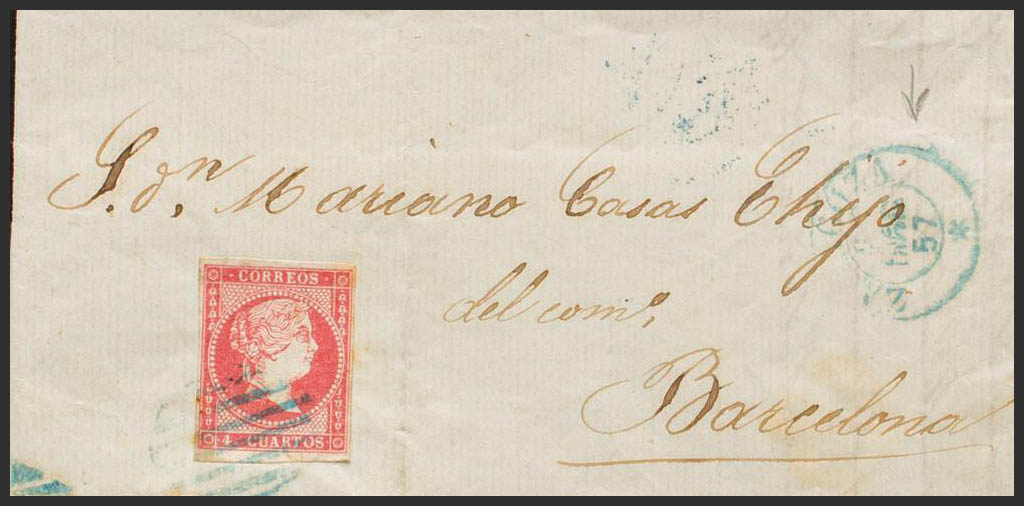 S. dn. Mariano Casas è hijo
del como.
Barcelona
CORREOS
4 CUARTOS
57